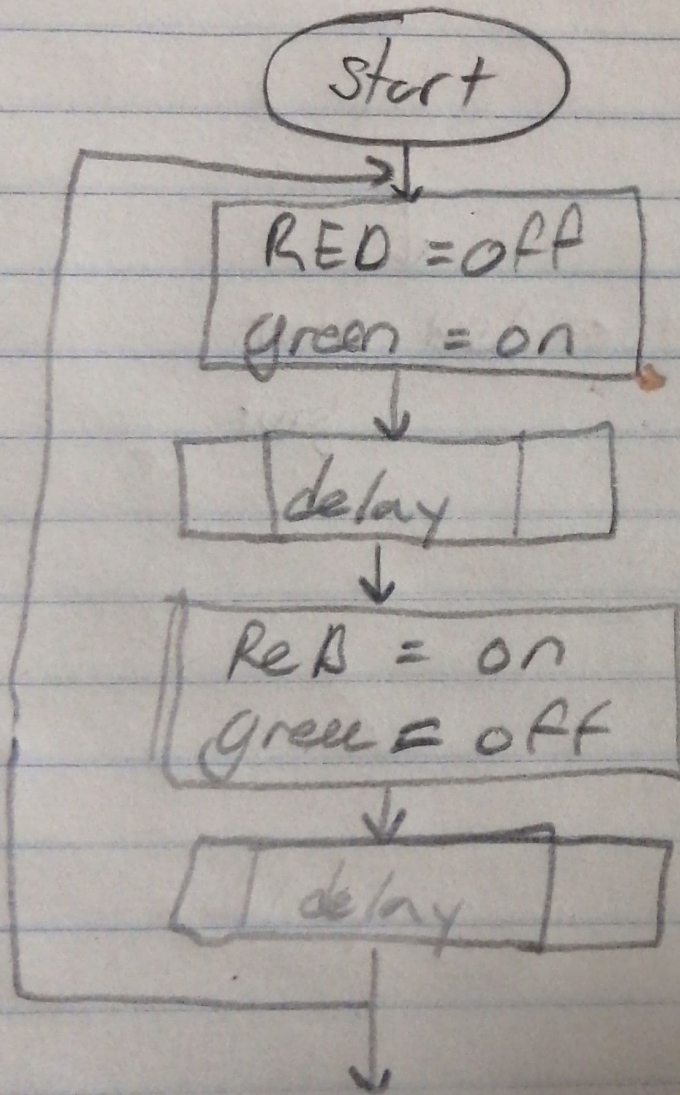 Start
RED = off
green = on
delay
ReD = on
green = off
delay